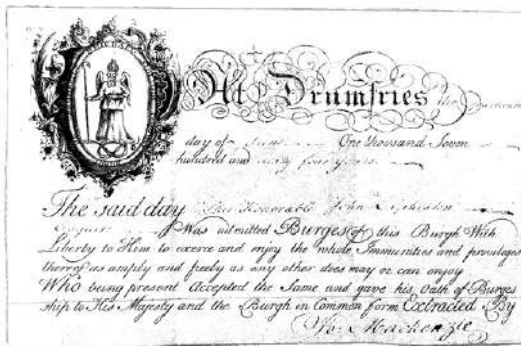 At Drumfries the
day of June One thousand Seven
hundred and sixty four years
The said day The Honorable John
Esquire Was admitted Burges of this Burgh With
Liberty to Him to exerce and enjoy the whole Immunities and priviledges
therof as amply and freely as any other does may or can enjoy
Who being present Accepted the Same and gave his Oath of Burges
ship to His Majesty and the Burgh in Common form Extracted By
Mackenzie